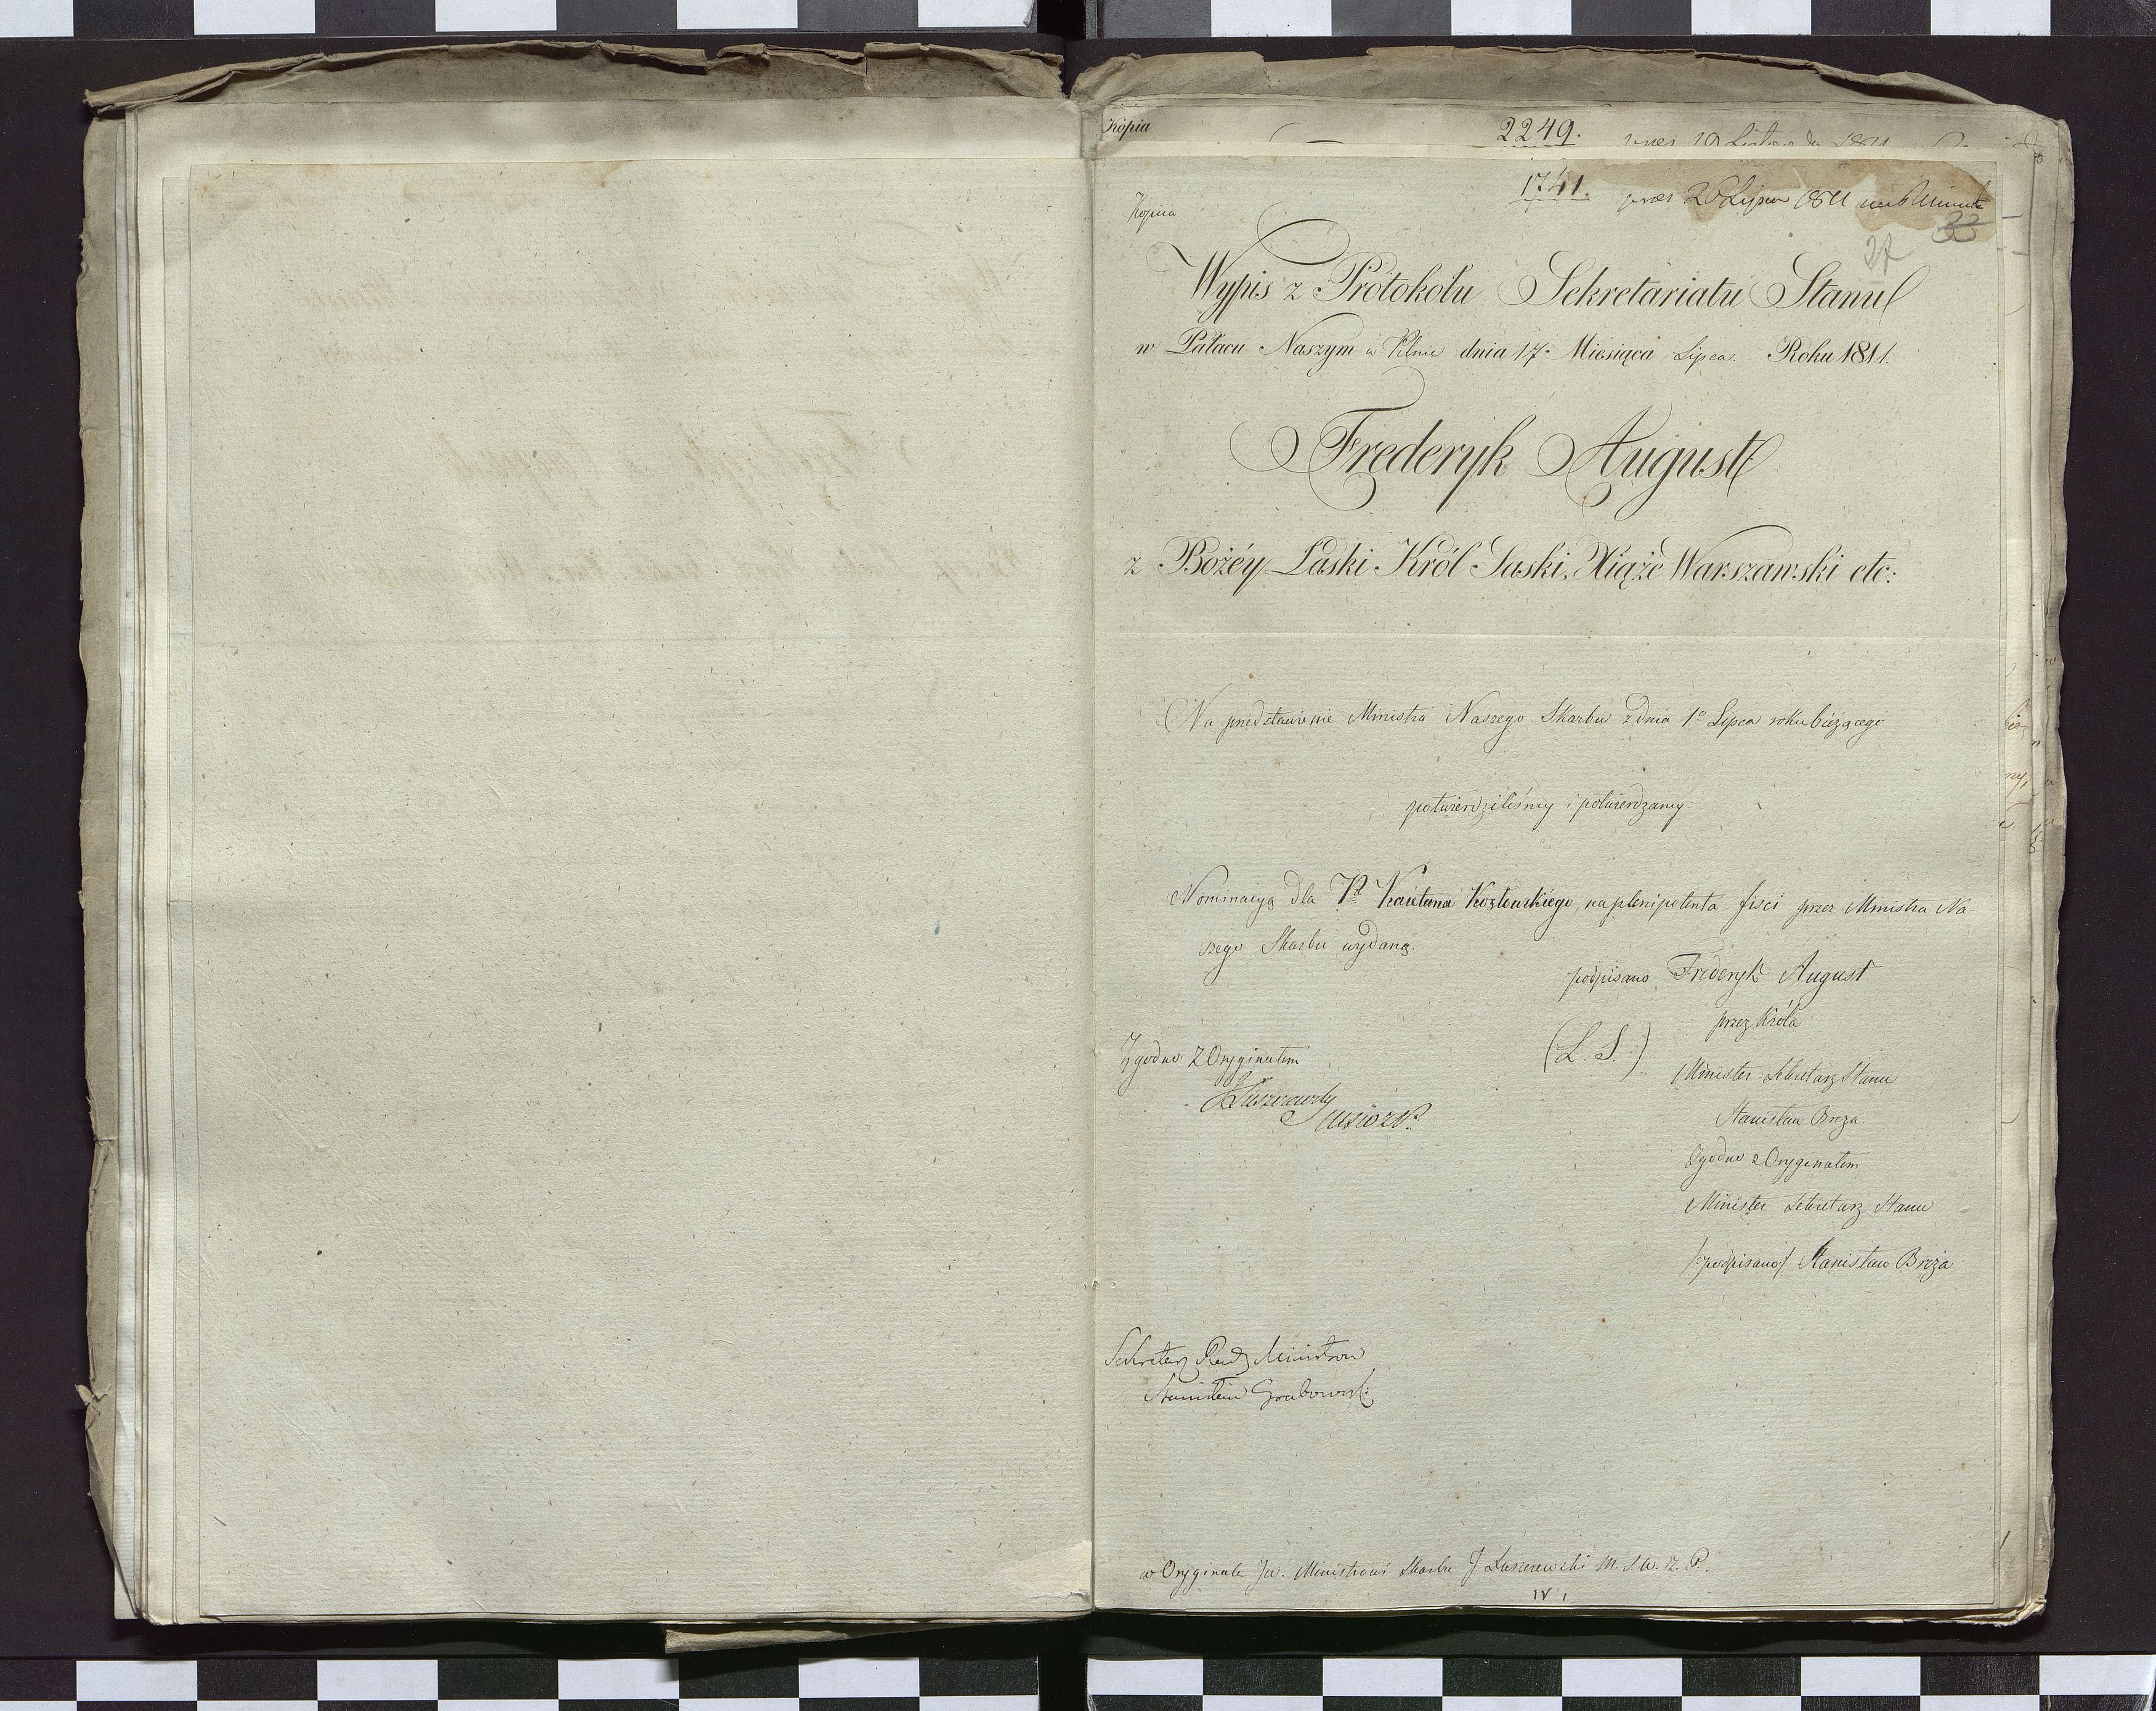 Kopia
2249.
1741.
pres 20 Lipca 1811
Kopia
33
27
Wypis z Protokołu Sekretariatu Stanu
w Pałacu Naszym w Pilnie dnia 17. Miesiąca Lipca Roku 1811.
Frederyk August
z Bożéy Łaski Król Saski, Xiąże Warszawski etc:
Na przedstawienie Ministra Naszego Skarbu z dnia 1º Lipca roku bieżącego
potwierdziliśmy i potwierdzamy:
Nominacyą dla Pº Kaietana Kozłowskiego, na plenipotenta fisci przez Ministra Na
szego Skarbu wydaną.
podpisano Frederyk August
przez Króla
(L. S.)
Minister Sekretarz Stanu
Stanisław Breza
Zgodno z Oryginałem
Minister Sekretarz Stanu
/:podpisano/ Stanisław Breza
Zgodno z Oryginałem
Sekretarz Rady Ministrow
Stanisław Grabowski
w Oryginale JW. Ministrowi Skarbu J. Łuszczewski M. S. W. Z. P.